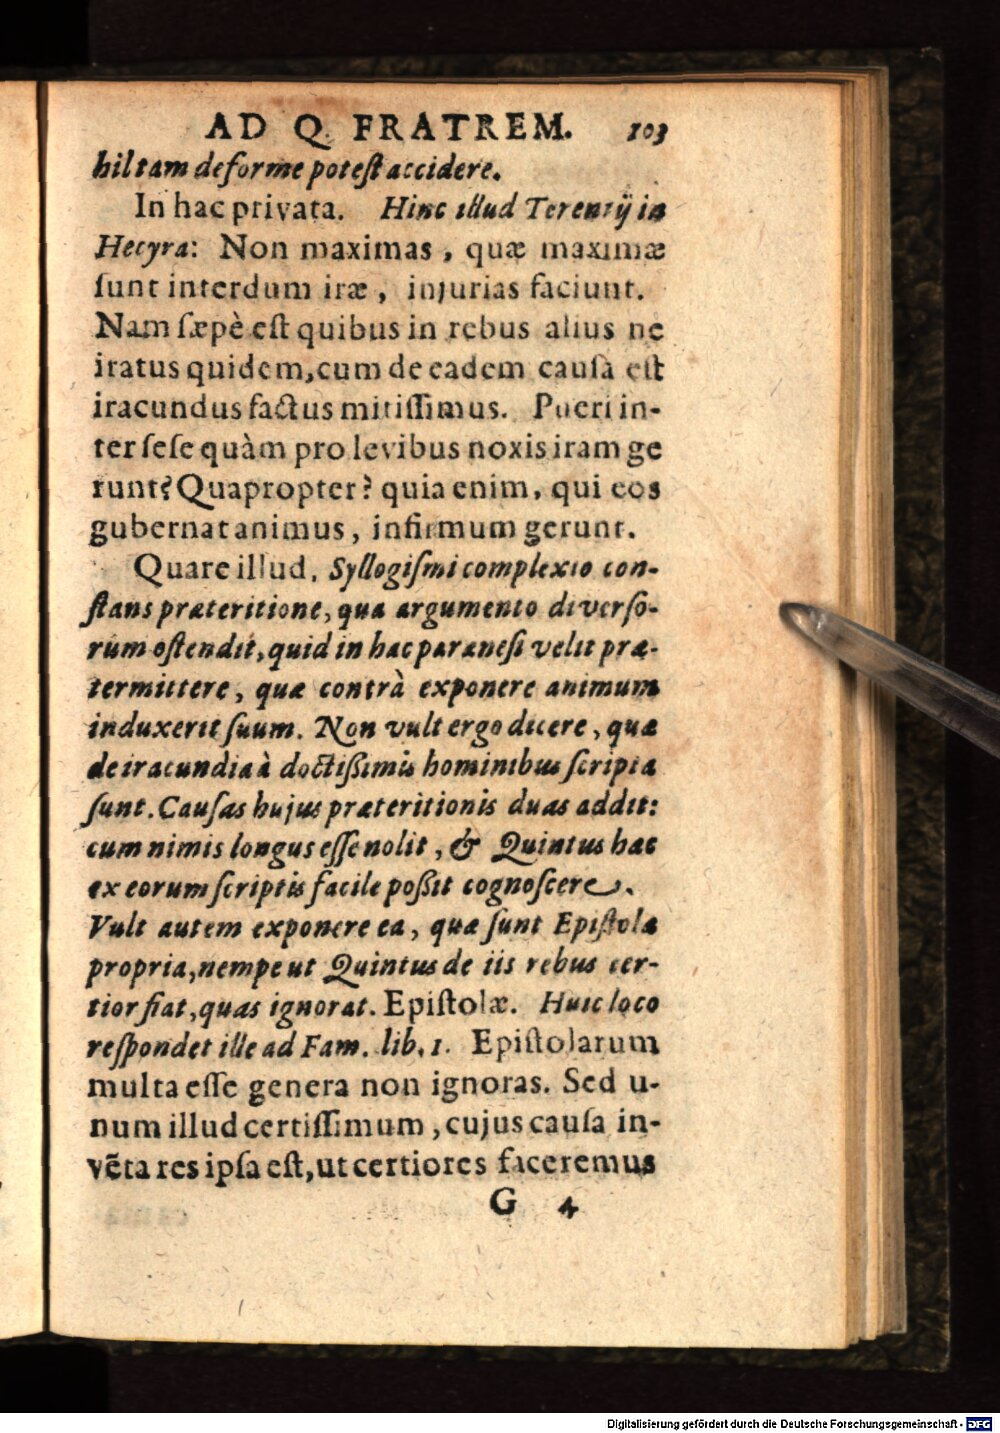 AD Q. FRATREM. 103
hil tam deforme poteſt accidere.
In hac privata. Hinc illud Terentij in
Hecyra: Non maximas, quæ maximæ
ſunt interdum iræ, injurias faciunt.
Nam ſæpè eſt quibus in rebus alius ne
iratus quidem, cum de eadem cauſâ eſt
iracundus factus mitiſſimus. Pueri in-
ter ſeſe quàm pro levibus noxis iram ge
runt? Quapropter? quia enim, qui eos
gubernat animus, infirmum gerunt.
Quare illud. Syllogiſmi complexio con-
ſtans præteritione, qua argumento diverſo-
rum oſtendit, quid in hac parænesi velit præ-
termittere, quæ contrà exponere animum
induxerit ſuum. Non vult ergo dicere, quæ
de iracundia à doctißimis hominibus ſcripta
ſunt. Cauſas hujus præteritionis duas addit:
cum nimis longus eſſe nolit, & Quintus hæc
ex eorum ſcriptis facile poßit cognoſcere.
Vult autem exponere ea, quæ ſunt Epiſtolæ
propria, nempe ut Quintus de iis rebus cer-
tior fiat, quas ignorat. Epiſtolæ. Huic loco
reſpondet ille ad Fam. lib. 1. Epiſtolarum
multa eſſe genera non ignoras. Sed u-
num illud certiſſimum, cujus cauſa in-
vẽta res ipſa eſt, ut certiores faceremus
G 4
Digitalisierung gefördert durch die Deutsche Forschungsgemeinschaft - DFG